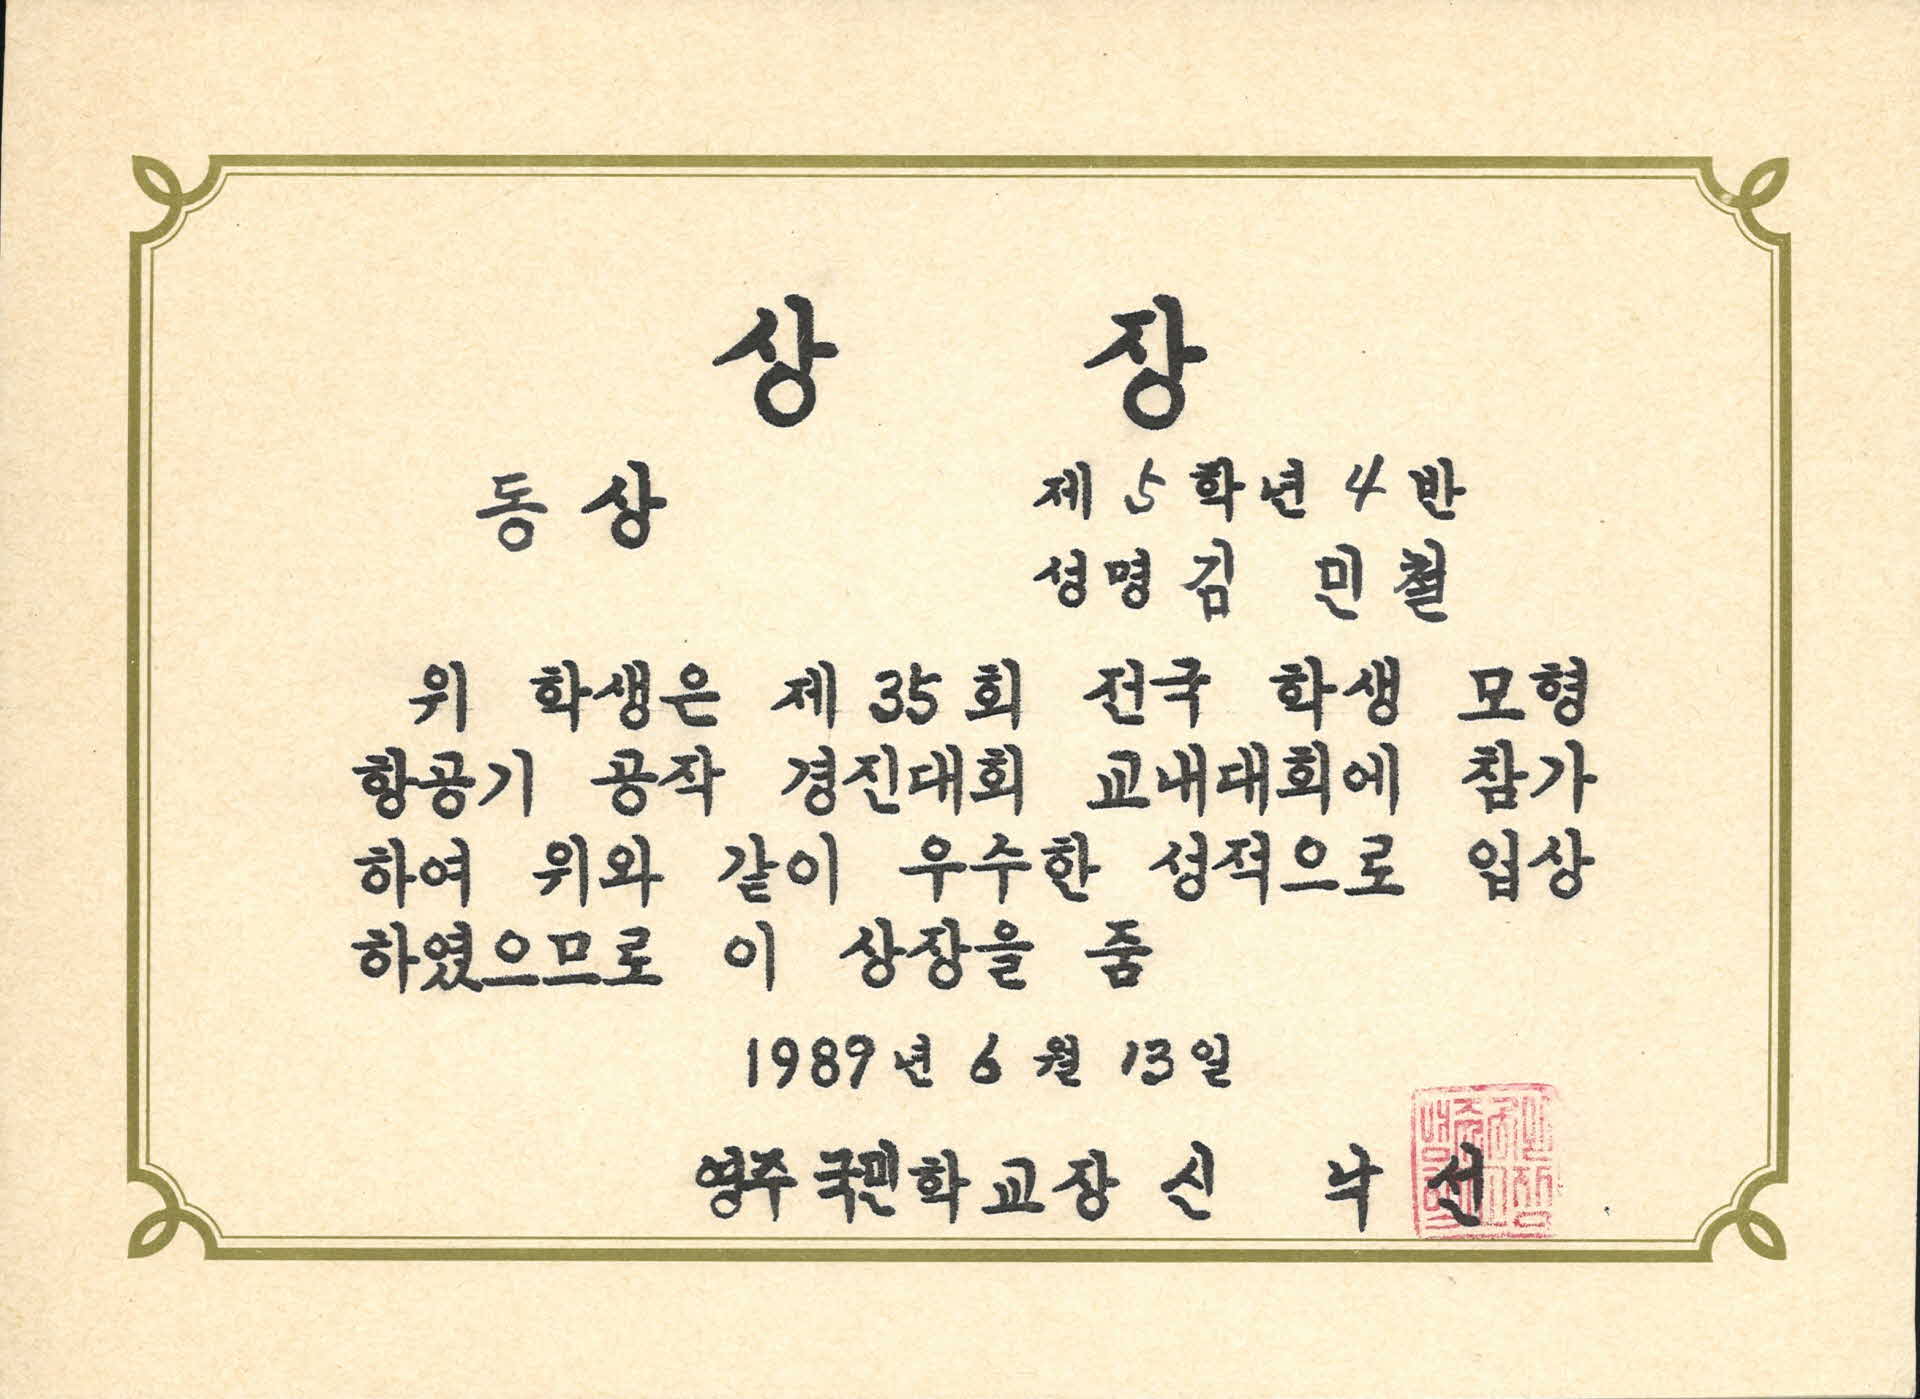 상 장
동상
제 5 학년 4 반
성명 김 민 철
위 학생은 제 35 회 전국 학생 모형
항공기 공작 경진대회 교내대회에 참가
하여 위와 같이 우수한 성적으로 입상
하였으므로 이 상장을 줌
1989 년 6 월 13 일
영주 국민학교장 신 낙 선